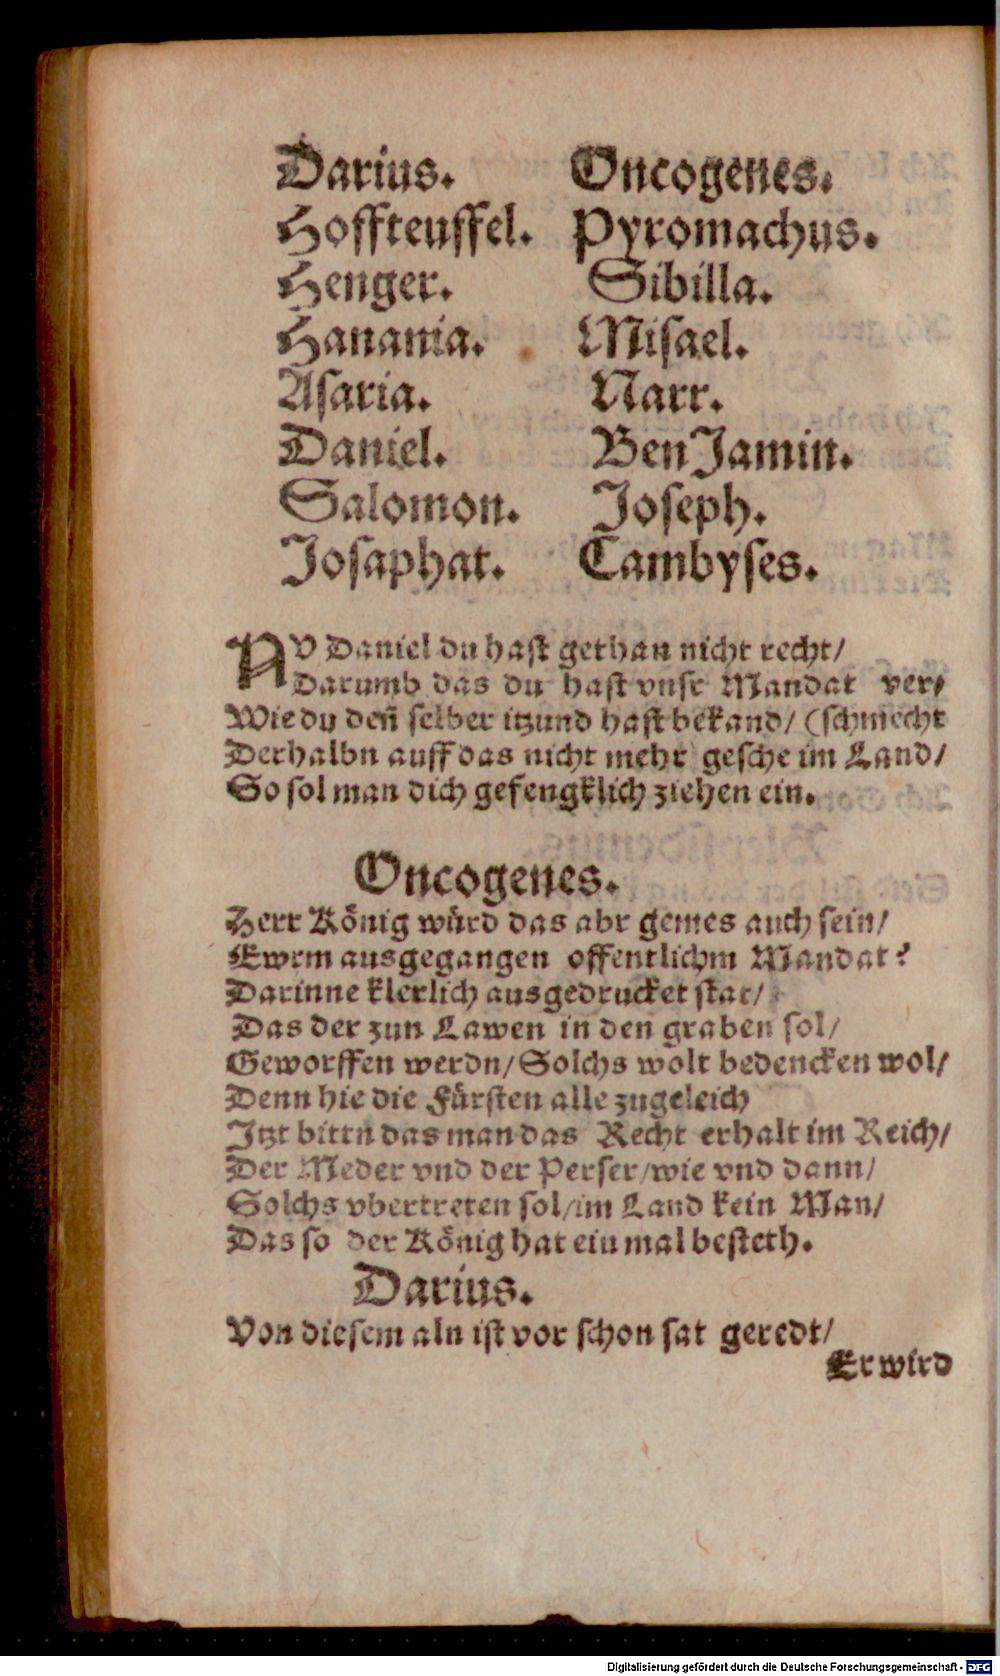 Darius. Oncogenes.
Hoffteuffel. Pyromachus.
Henger. Sibilla.
Hanania. Misael.
Asaria. Narr.
Daniel. BenJamin.
Salomon. Joseph.
Josaphat. Cambyses.
NV Daniel du hast gethan nicht recht/
Darumb das du hast vnsr Mandat ver⸗
Wie du deñ selber itzund hast bekand/ (schmecht
Derhalbn auff das nicht mehr gesche im Land/
So sol man dich gefengklich ziehen ein.
Oncogenes.
Herr König würd das abr gemes auch sein/
Ewrm ausgegangen offentlichm Mandat?
Darinne klerlich ausgedrucket stat/
Das der zun Lawen in den graben sol/
Geworffen werdn/ Solchs wolt bedencken wol/
Denn hie die Fürsten alle zugeleich
Itzt bittn das man das Recht erhalt im Reich/
Der Meder vnd der Perser/wie vnd dann/
Solchs vbertreten sol/im Land kein Man/
Das so der König hat ein mal besteth.
Darius.
Von diesem aln ist vor schon sat geredt/
Er wird
Digitalisierung gefördert durch die Deutsche Forschungsgemeinschaft - DFG